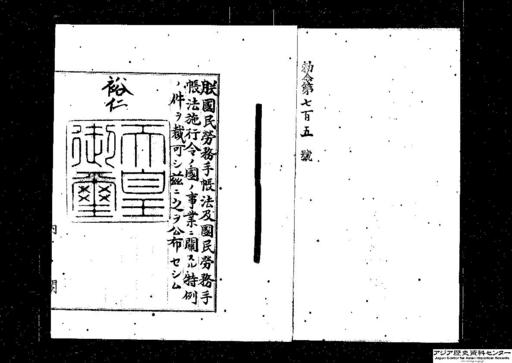 勅令第七百五號
朕國民勞務手帳法及國民勞務手
帳法施行令ノ國ノ事業ニ關スル特例
ノ件ヲ裁可シ茲ニ之ヲ公布セシム
裕仁
天皇
御璽
内閣
アジア歴史資料センター
Japan Center for Asian Historical Records